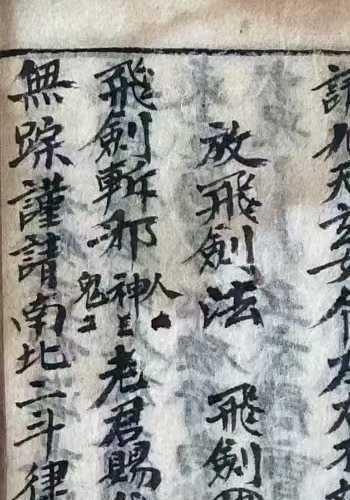 九天玄女
放飛劍法 飛劍
飛劍斬邪神人鬼老君賜
無踪謹請南北二斗律